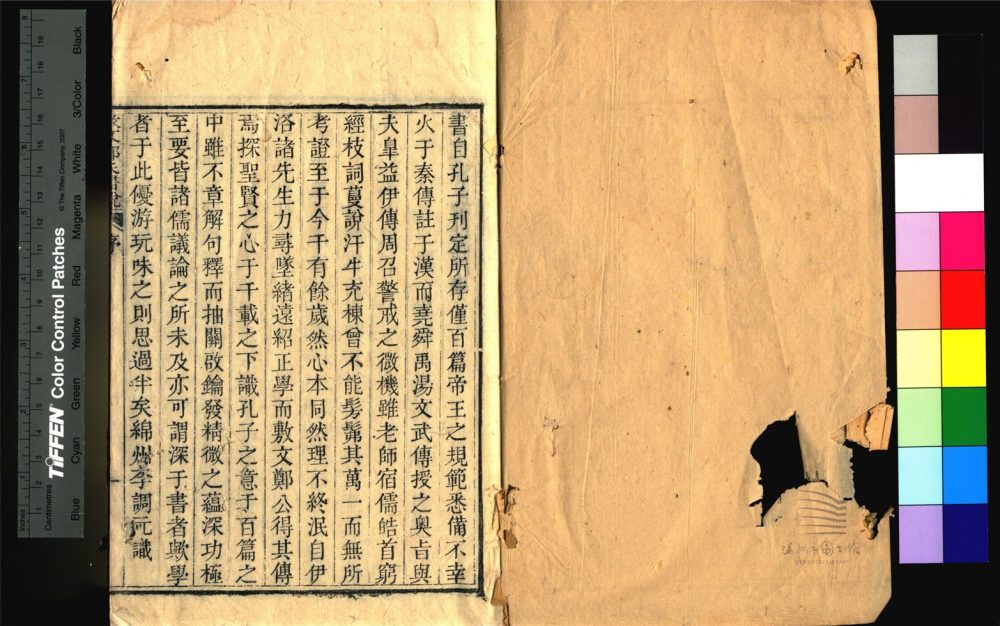 書自孔子刊定所存僅百篇帝王之規範悉備不幸
火于秦傳註于漢而堯舜禹湯文武傳授之奧旨與
夫臯益伊傅周召警戒之微機雖老師宿儒皓首窮
經枝詞蔓說汗牛充棟曾不能髣髴其萬一而無所
考證至于今千有餘歲然心本同然理不終泯自伊
洛諸先生力尋墜緒遠紹正學而敷文鄭公得其傳
焉探聖賢之心于千載之下識孔子之意于百篇之
中雖不章解句釋而抽關啟鑰發精微之蘊深功極
至要皆諸儒議論之所未及亦可謂深于書者歟學
者于此優游玩味之則思過半矣綿州李調元識
敷文鄭氏書說 序
Inches
Centimetres
TIFFEN Color Control Patches
© The Tiffen Company, 2007
Blue Cyan Green Yellow Red Magenta White 3/Color Black
温州市圖書館
WENZHOU LIBRARY